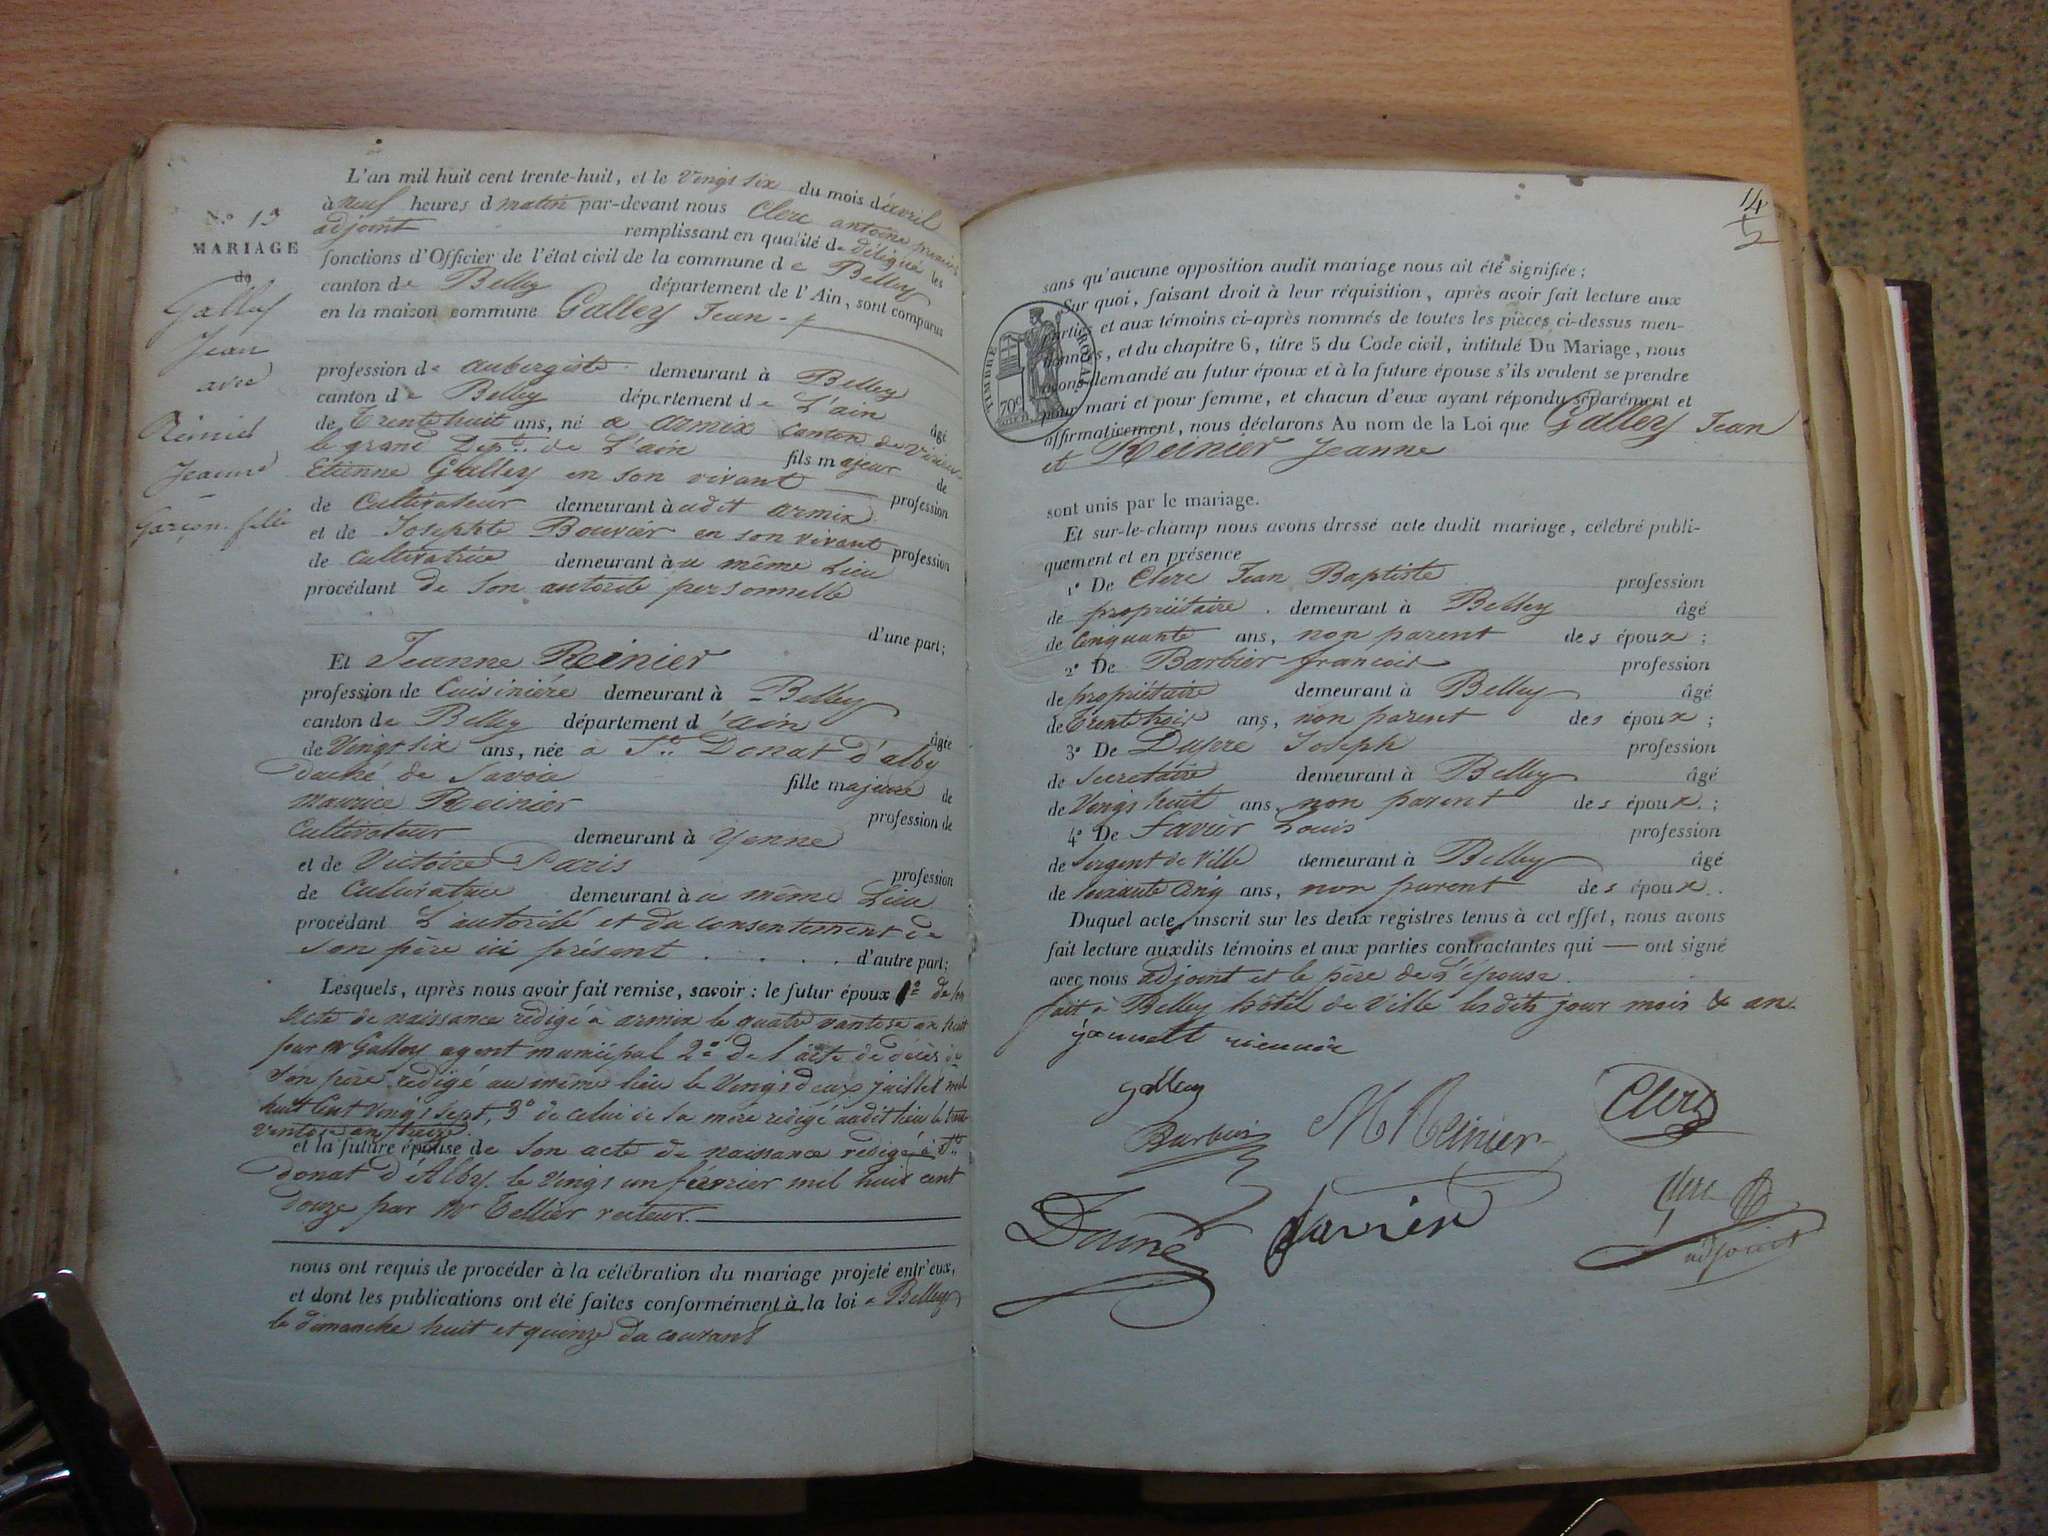 L'an mil huit cent trente-huit, et le Vingt six du mois d'avril
à neuf heures d matin par-devant nous Clerc antoine premier
adjoint remplissant en qualité de délégué les
fonctions d'Officier de l'état civil de la commune de Belley
canton de Belley département de l'Ain, sont comparus
en la maison commune Galley Jean
N.° 13
MARIAGE
de
Galley
Jean
avec
Reinier
Jeanne
Garçon. fille
profession de aubergiste demeurant à Belley
canton de Belley département de L'ain
âgé
de Trente huit ans, né a armix Canton de Virieu
le grand Dep.t de L'ain fils majeur de
Etienne Galley en son vivant profession
de Cultivateur demeurant audit armix
et de Josephte Bouvier en son vivant profession
de Cultivatrice demeurant au même Lieu
procédant de Son autorité personnelle
d'une part;
Et Jeanne Reinier
profession de Cuisinière demeurant à Belley
canton de Belley département d l'ain
âgée
de Vingt six ans, née a St. Donat d'alby
duché de Savoie fille majeure de
maurice Reinier profession de
Cultivateur demeurant à Yenne
et de Victoire Paris profession
de Cultivatrice demeurant au même Lieu
procédant L'autorité et du consentement de
son père ici présent d'autre part;
Lesquels, après nous avoir fait remise, savoir: le futur époux 1° de son
acte de naissance rédigé à armix le quatre vantose an huit
par Mr Galley agent municipal 2° de l'acte de décès de
Son père rédigé au même lieu le Vingt deux juillet mil
huit Cent Vingt Sept, 3° de celui de sa mère rédigé audit lieu le
Ventose an treize.
et la future épouse de Son acte de naissance rédigé à St.
donat d'Alby le Vingt un février mil huit cent
douze par Mr Tellier recteur.
nous ont requis de procéder à la célébration du mariage projeté entr'eux,
et dont les publications ont été faites conformément à la loi a Belley
le dimanche huit et quinze du courant
14
sans qu'aucune opposition audit mariage nous ait été signifiée;
Sur quoi, faisant droit à leur réquisition, après avoir fait lecture aux
parties et aux témoins ci-après nommés de toutes les pièces ci-dessus men-
tionnées, et du chapitre 6, titre 5 du Code civil, intitulé Du Mariage, nous
avons demandé au futur époux et à la future épouse s'ils veulent se prendre
pour mari et pour femme, et chacun d'eux ayant répondu séparément et
affirmativement, nous déclarons Au nom de la Loi que Galley Jean
et Reinier Jeanne
TIMBRE ROYAL
70c
sont unis par le mariage.
Et sur-le-champ nous avons dressé acte dudit mariage, célébré publi-
quement et en présence
1° De Clerc Jean Baptiste profession
de propriétaire demeurant à Belley âgé
de Cinquante ans, non parent des époux;
2° De Barbier francois profession
de propriétaire demeurant à Belley âgé
de Trente trois ans, non parent des époux;
3° De Joseph profession
de Secretaire demeurant à Belley âgé
de Vingt huit ans, non parent des époux;
4° De Favier Louis profession
de Sergent de Ville demeurant à Belley âgé
de soixante cinq ans, non parent des époux.
Duquel acte, inscrit sur les deux registres tenus à cet effet, nous avons
fait lecture auxdits témoins et aux parties contractantes qui — ont signé
avec nous adjoint et le père de L'épouse.
fait à Belley hôtel de Ville lesdits jour mois & an.
Galley
Barbier
M Reinier
Clerc
favier
Clerc
adjoint